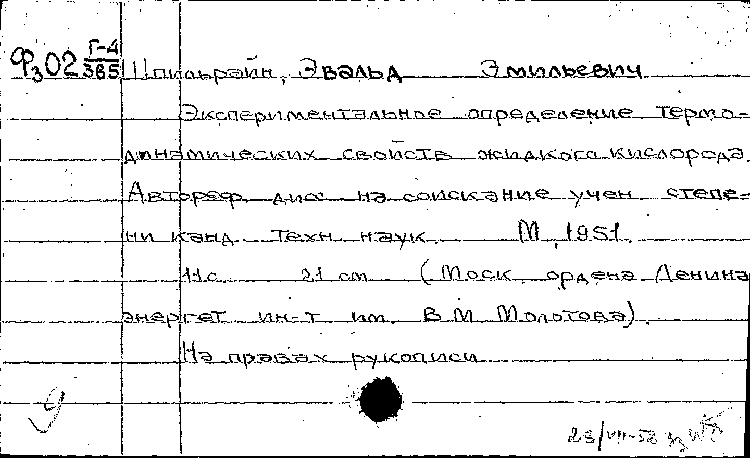 Ф₃02 Г-4/385 Шпильрайн, Эвальд Эмильевич
Экспериментальное определение термо-
динамических свойств жидкого кислорода.
Автореф. дис. на соискание учен. степе-
ни канд. техн. наук. М, 1951.
11с. 21 см (Моск. ордена Ленина
энергет. ин-т им. В.М. Молотова).
На правах рукописи
9
23/VII-52